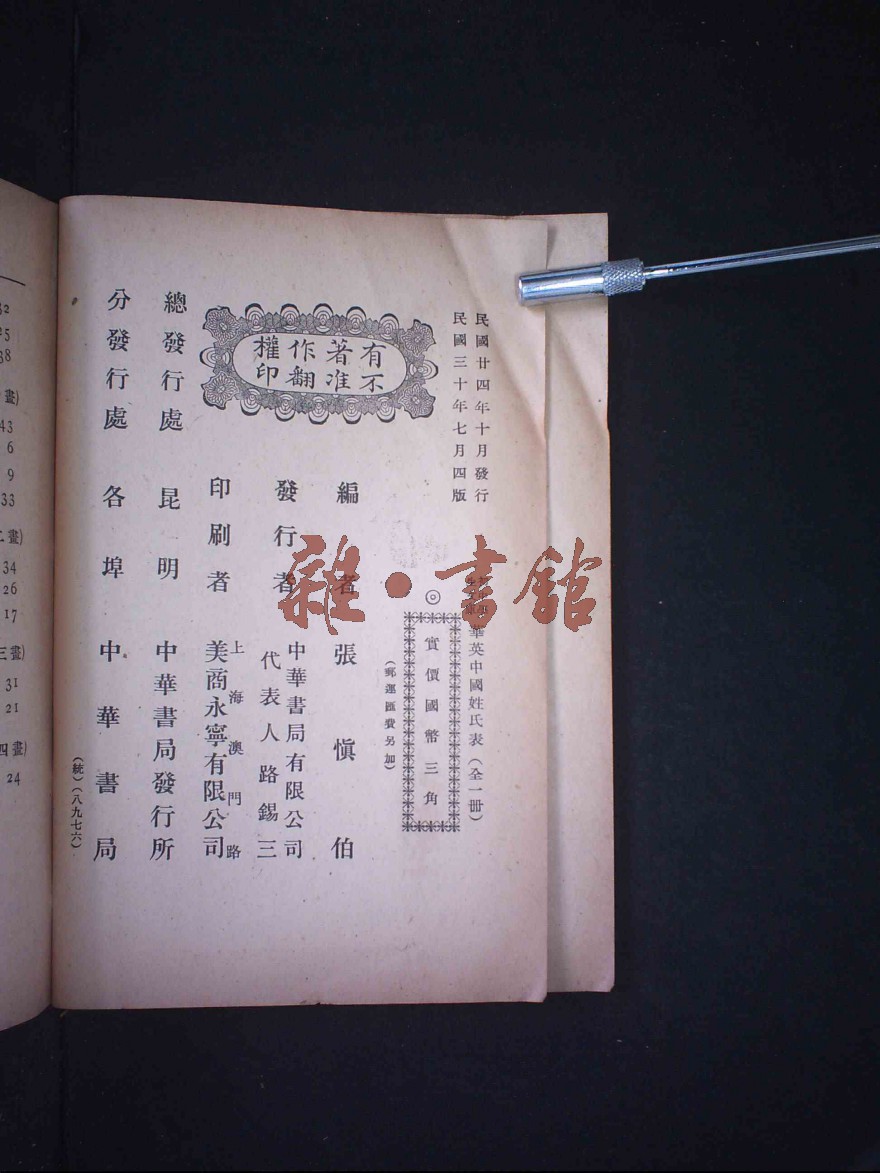 民國廿四年十月發行
民國三十年七月四版
華英中國姓氏表（全一冊）
◎實價國幣三角
（郵運匯費另加）
有著作權
不准翻印
編者 張愼伯
發行者 中華書局有限公司
代表人路錫三
印刷者 上海澳門路
美商永寧有限公司
總發行處 昆明 中華書局發行所
分發行處 各埠 中華書局
（統）（八九七六）
雜·書館
32
25
38
畫)
43
6
9
33
二畫)
34
26
17
三畫)
31
21
四畫)
24